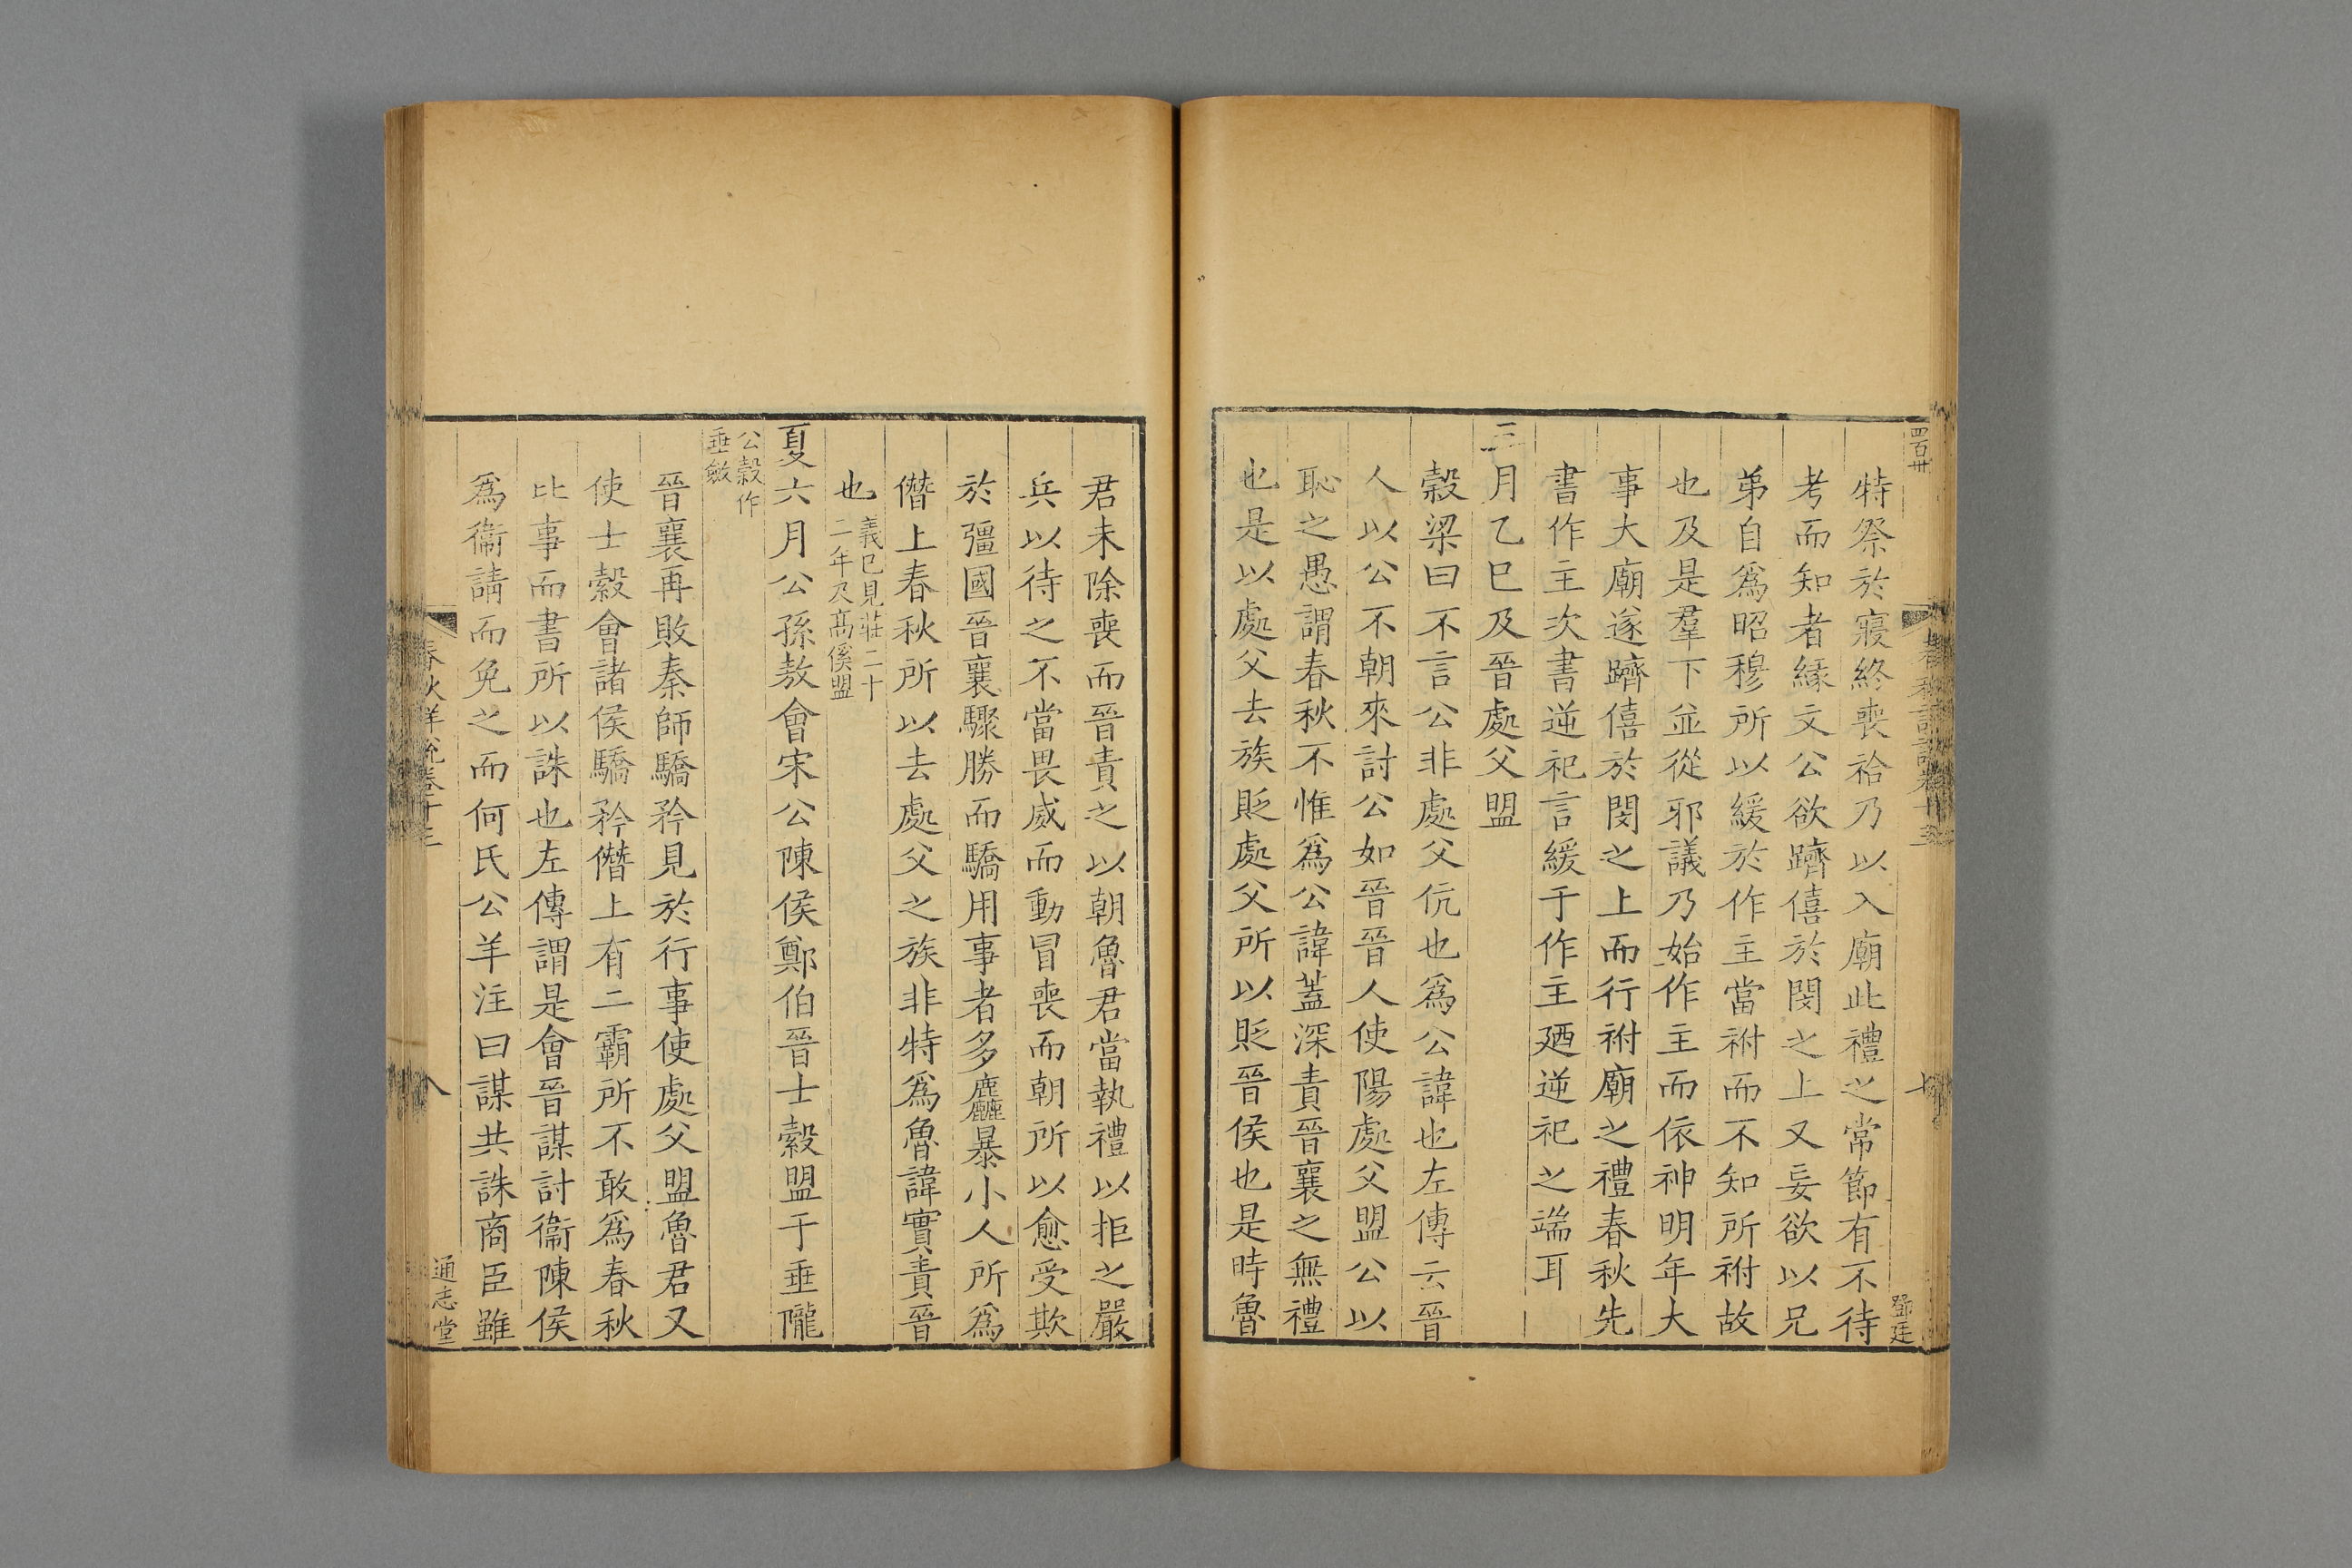 四百卅
特祭於寢終喪祫乃以入廟此禮之常節有不待
考而知者緣文公欲躋僖於閔之上又妄欲以兄
弟自爲昭穆所以緩於作主當祔而不知所祔故
也及是羣下並從邪議乃始作主而依神明年大
事大廟遂躋僖於閔之上而行祔廟之禮春秋先
書作主次書逆祀言緩于作主廼逆祀之端耳
三月乙巳及晉處父盟
穀梁曰不言公非處父伉也爲公諱也左傳云晉
人以公不朝來討公如晉晉人使陽處父盟公以
恥之愚謂春秋不惟爲公諱蓋深責晉襄之無禮
也是以處父去族貶處父所以貶晉侯也是時魯
君未除喪而晉責之以朝魯君當執禮以拒之嚴
兵以待之不當畏威而動冒喪而朝所以愈受欺
於彊國晉襄驟勝而驕用事者多麤暴小人所爲
僭上春秋所以去處父之族非特爲魯諱實責晉
也義已見莊二十二年及高傒盟
夏六月公孫敖會宋公陳侯鄭伯晉士縠盟于垂隴
公穀作垂斂
晉襄再敗秦師驕矜見於行事使處父盟魯君又
使士縠會諸侯驕矜僭上有二霸所不敢爲春秋
比事而書所以誅也左傳謂是會晉謀討衞陳侯
爲衞請而免之而何氏公羊注曰謀共誅商臣雖
春秋詳說卷十三
八
通志堂